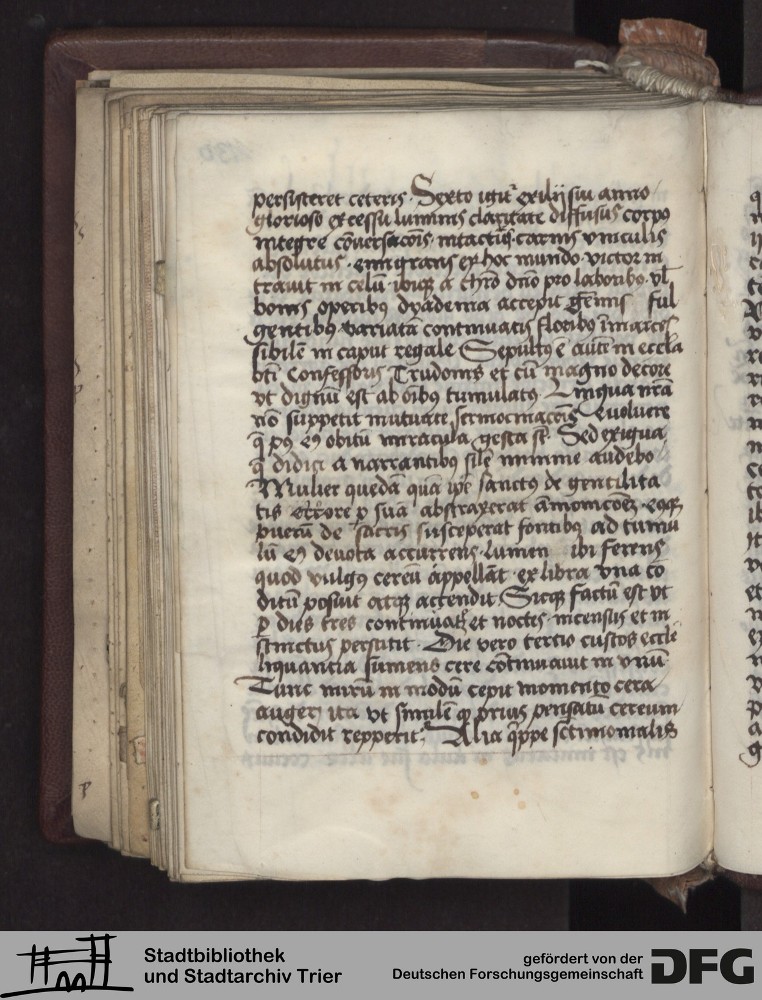 persisteret ceteris · Sexto igit᷑ exilij sui anno
glorioso excessu luminis claritate diffusus corpꝰ
integre cōversacōis · intactūqꝫ carnis vinculis
absolutus · emigrans ex hoc mundo · victor in
travit in celū · ibiqꝫ a thrō dn̄o pro laboribꝰ · vł
bonis operibꝰ dyadema accepit gēmis ful
gentibꝰ variatā continuatis floribꝰ īmarces
sibilē in caput regale Sepultꝰ ē autē in eccła
bti Confessoris Trudonis et cū magno decore
vt dignū est ab oībus tumulatꝰ Lingua nrā
nō suppetit mutuate sermocinacōis evoluere
q̄ pꝰ eꝰ obitū miracula gesta st̄ Sed exigua
q̄ didici a narrantibꝰ silē minime audebo
Mulier quedā quā ip̄e sanctus de gentilita
tis errore ꝑ suā abstraxerat āmonicōez · eꝰqꝫ
puerū de sacris susceperat fontibus ad tumu
lū eꝰ devota accurrens · lumen ibi ferens
quod vulgꝰ cereū appellāt · ex libra vna cō
ditū posuit atqꝫ accendit Sicqꝫ factū est vt
ꝑ dies tres continuatī et noctes · incensus et in
stinctus perstitit · Die vero tercio custos eccłe
liquantia sumens cere cōtinuauit in vnū
Tunc mirū in modū cepit momento cera
augeri ita vt similē qꝫ prius pensatū cereum
condidit repperit · Alia q̄ppe sctimonialis
Stadtbibliothek
und Stadtarchiv Trier
gefördert von der
Deutschen Forschungsgemeinschaft
DFG